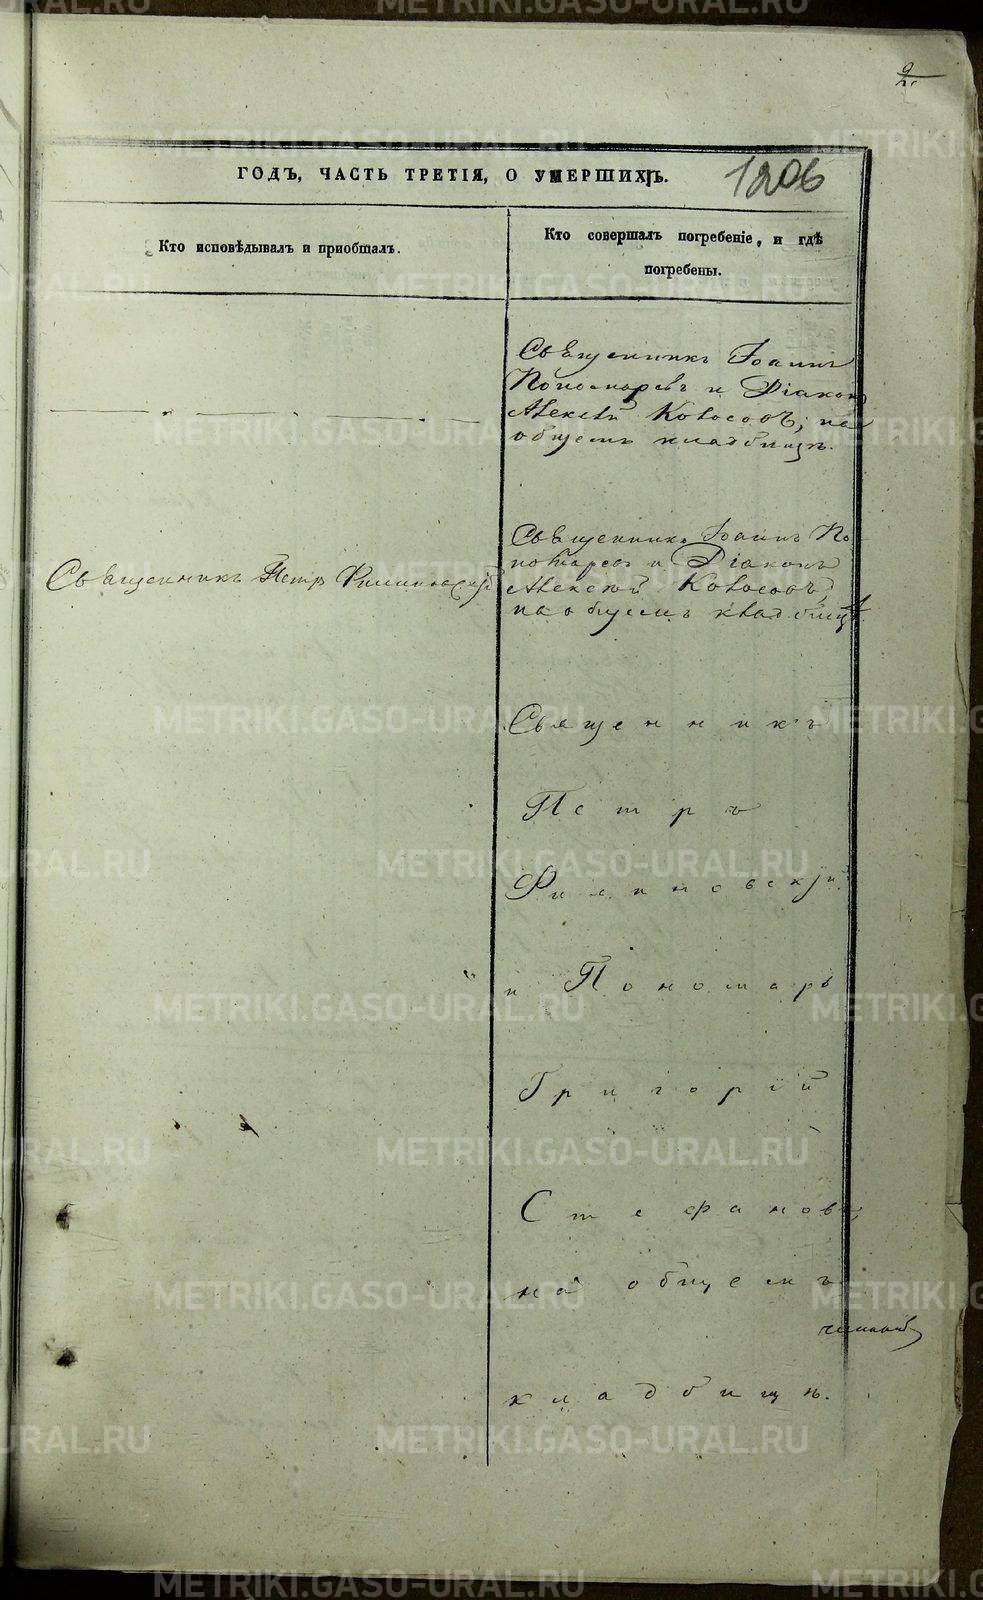 1206
ГОДЪ, ЧАСТЬ ТРЕТІЯ, О УМЕРШИХЪ.
Кто исповѣдывалъ и приобщалъ.
Кто совершалъ погребеніе, и гдѣ
погребены.
Священникъ Іоаннъ
Пономаревъ и Діаконъ
Алексѣй Колосовъ; на
общемъ кладбищѣ.
Священникъ Петръ Филиновскій
Священникъ Іоаннъ По
номаревъ и Діаконъ
Алексѣй Колосовъ;
на общемъ кладбищѣ.
Священникъ
Петръ
Филиновскій
и Пономарь
Григорій
Стефановъ;
на общемъ
кладбищѣ.
METRIKI.GASO-URAL.RU